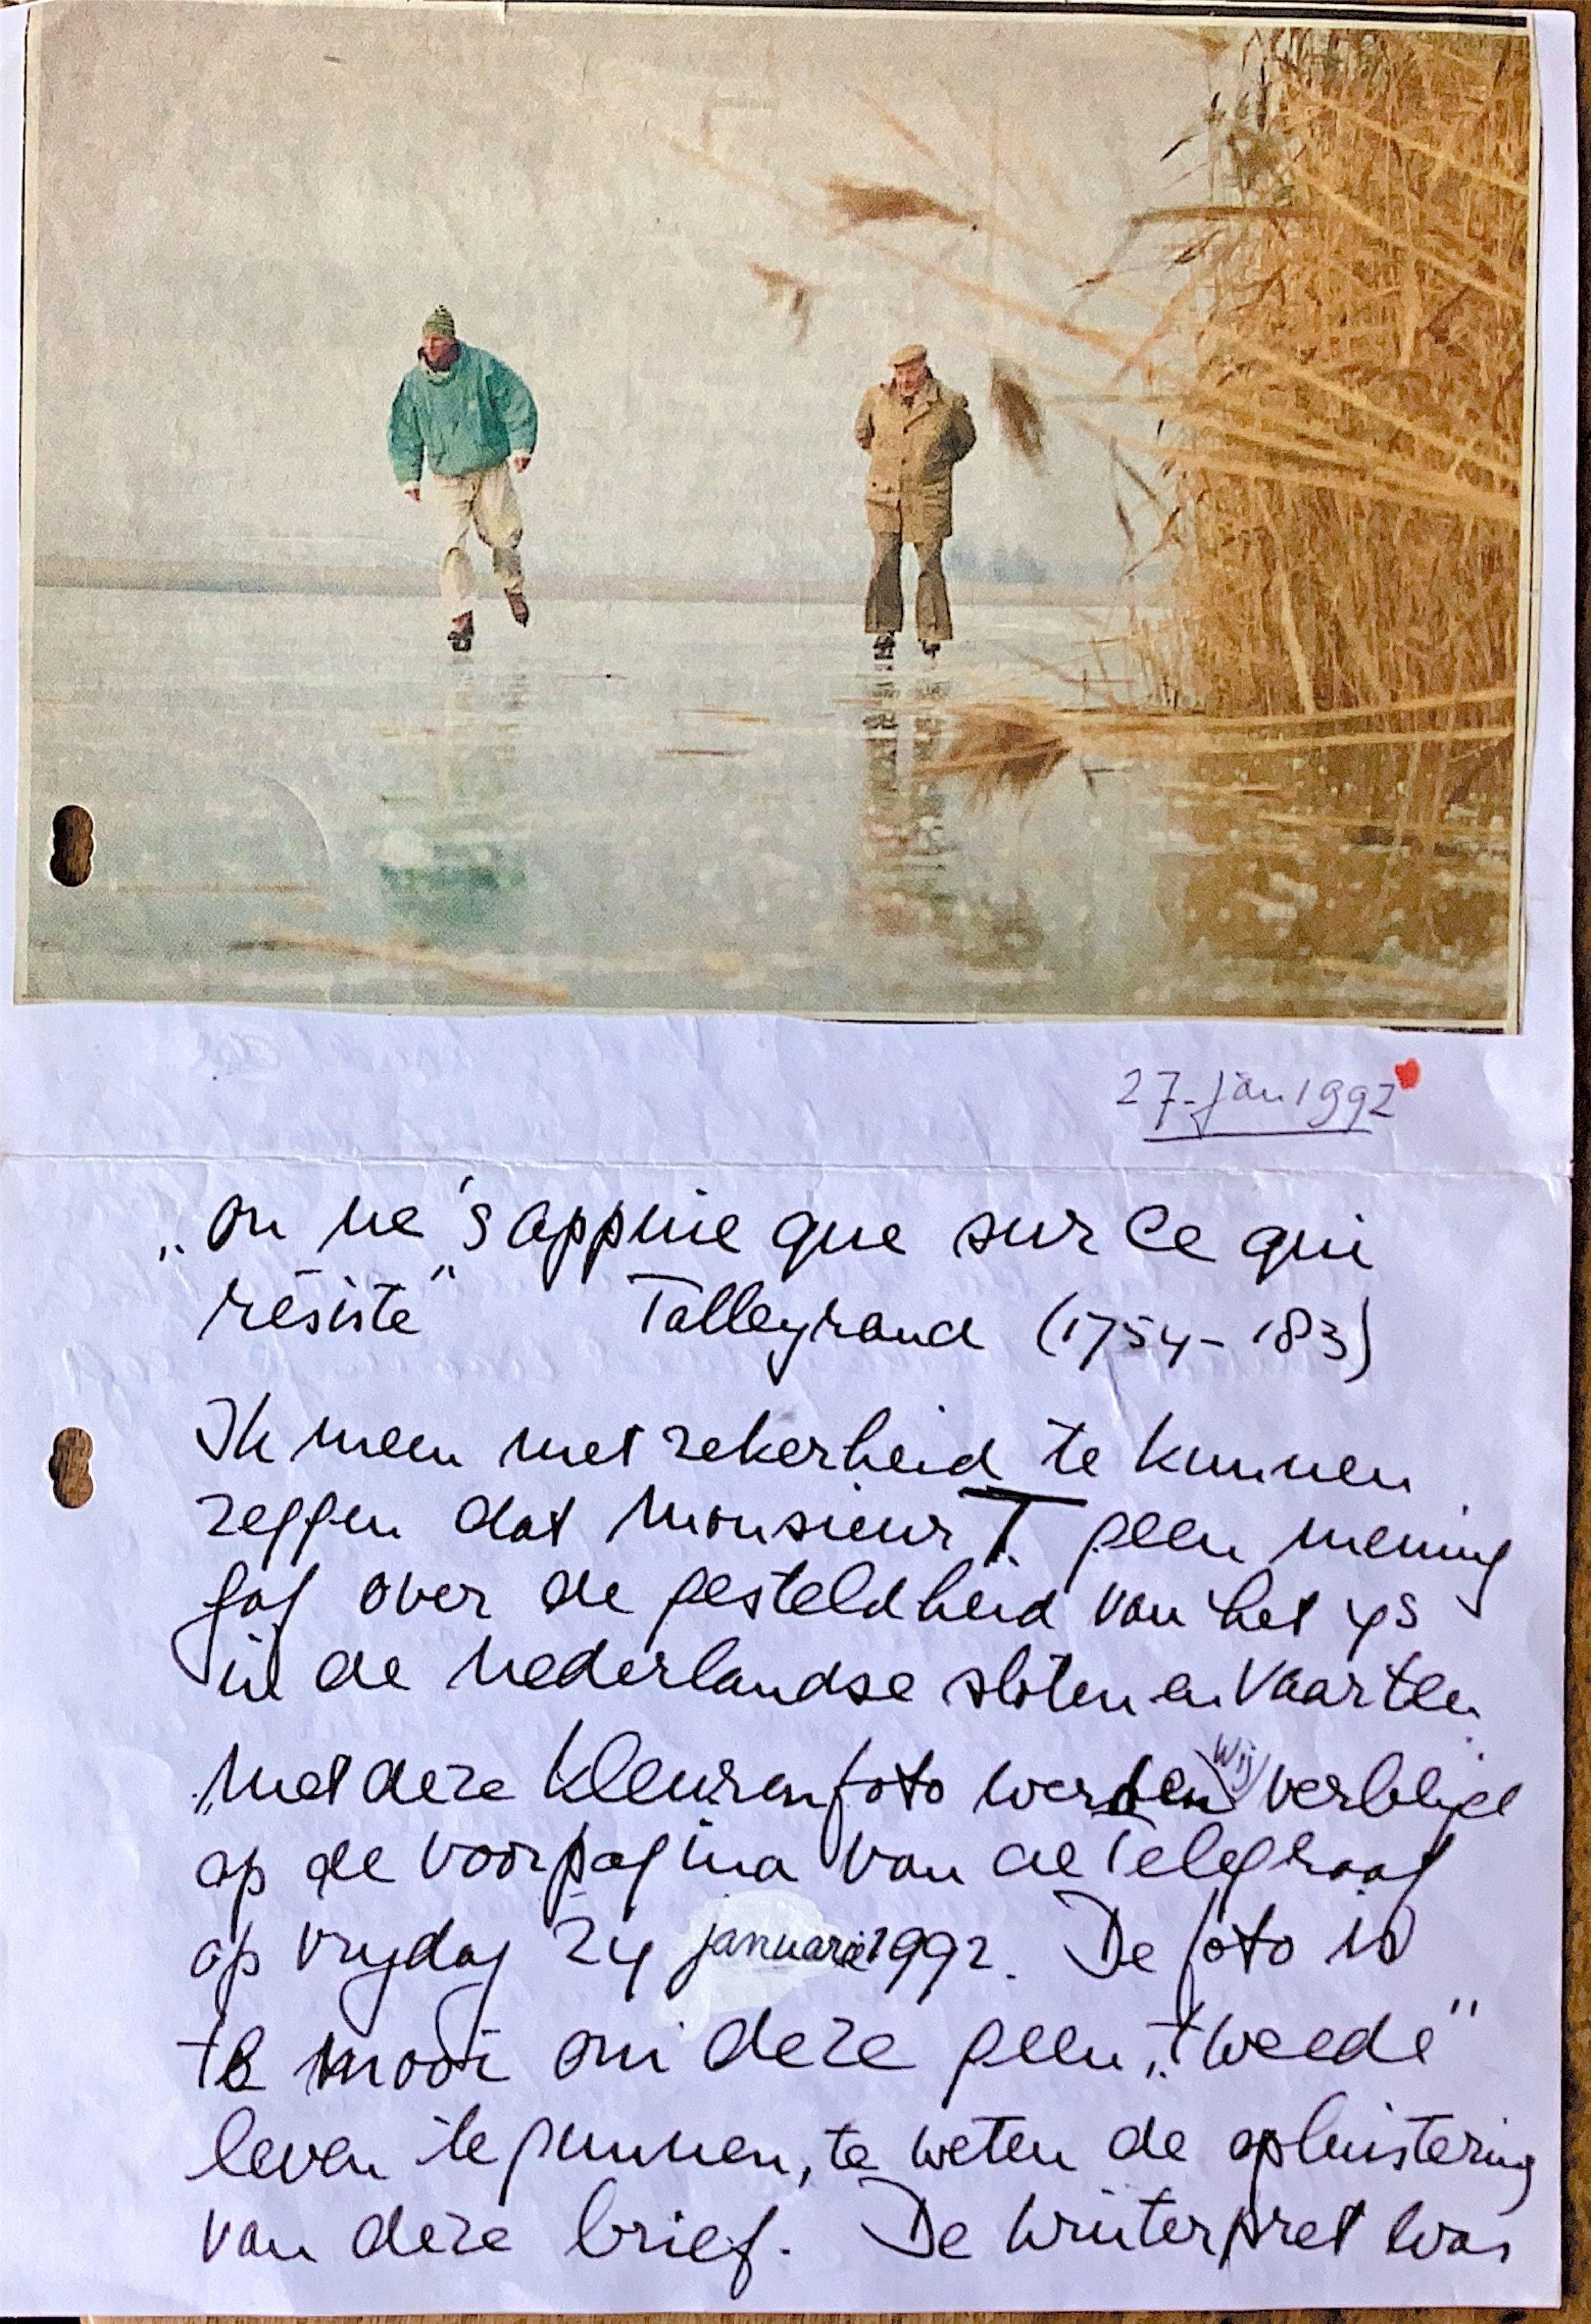 27-jan 1992
„on ne 's appuie que sur ce qui
résiste" Talleyrand (1754-183)
Ik meen met zekerheid te kunnen
zeggen dat Monsieur T. geen mening
gaf over de gesteldheid van het ys
in de nederlandse sloten en vaarten
Met deze kleurenfoto werden wij verblijd
op de voorpagina van de Telegraaf
op vrydag 24 januari 1992. De foto is
te mooi om deze geen „tweede"
leven te gunnen, te weten de opluistering
van deze brief. De winterpret was